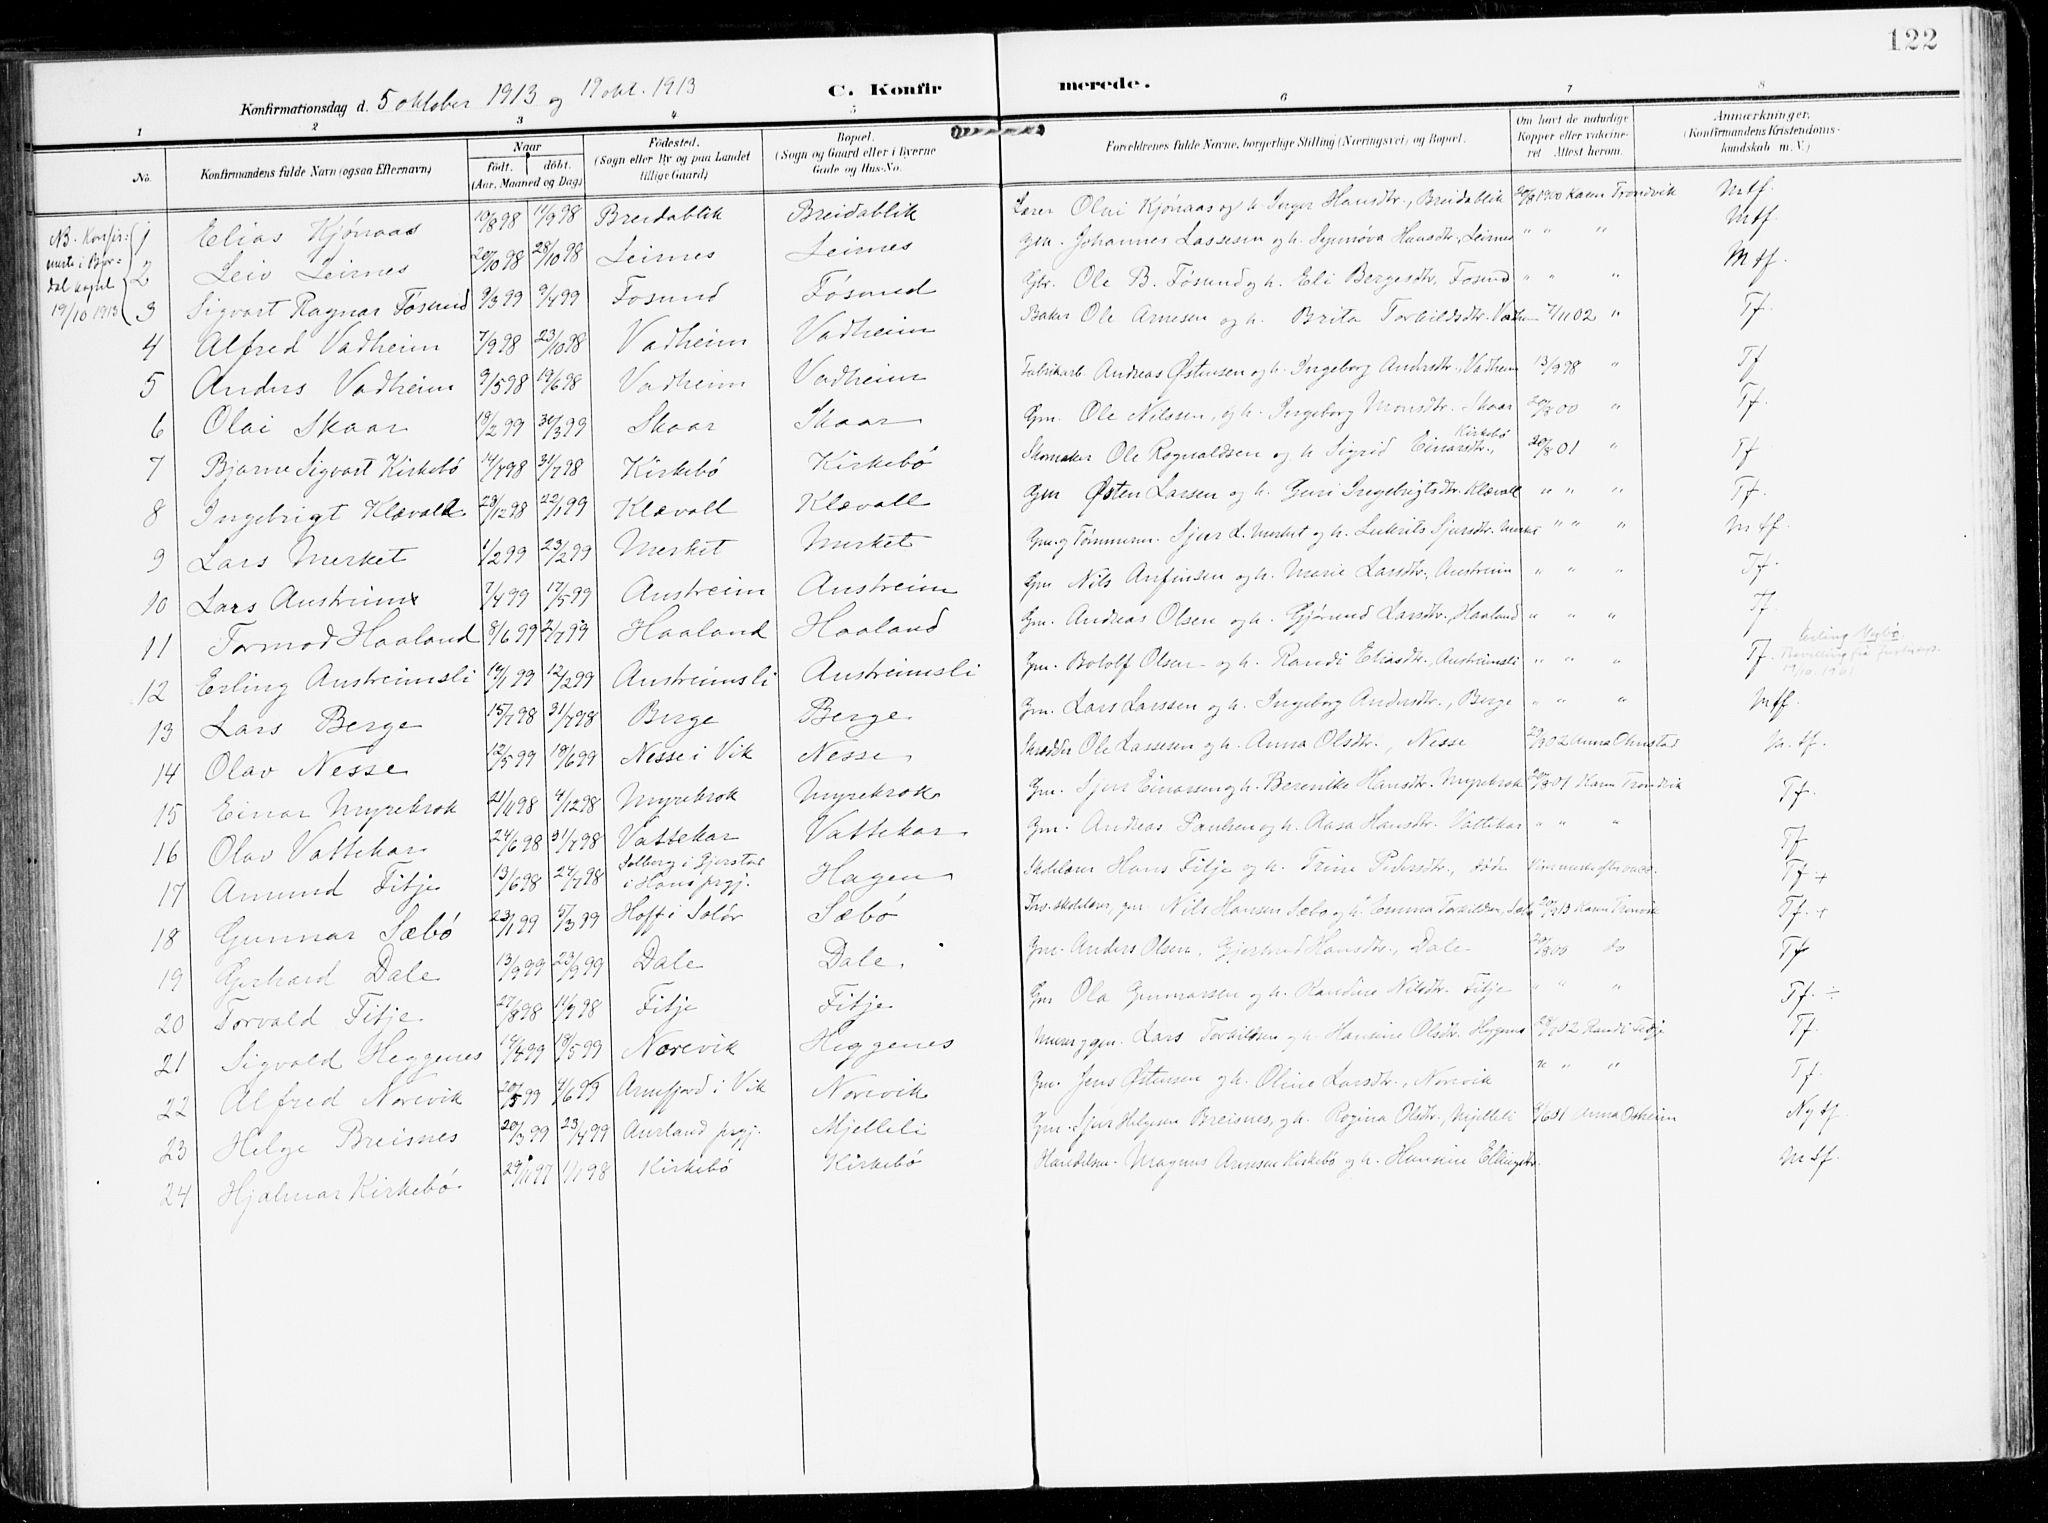 122
Konfirmationsdag d. 5 oktober 1913 og 19 okt. 1913 C. Konfirmerede.
1 2 3 4 5 6 7 8
No. Konfirmandens fulde Navn (ogsaa Efternavn) Naar født. døbt. (Aar, Maaned og Dag) Fødested. (Sogn eller By og paa Landet tillige Gaard) Bopæl. (Sogn og Gaard eller i Byerne Gade og Hus-No. Forældrenes fulde Navne, borgerlige Stilling (Næringsvei) og Bopæl. Om havt de naturlige Kopper eller vakcineret Attest herom. Anmærkninger, (Konfirmandens Kristendomskundskab m. V.)
NB. Konfirmerte i kapel 19/10 1913
1 Elias Kjönaas 10/8 98 11/9 98 Breidablik Breidablik Lærer Olai Kjönaas og h. Inger Hansdtr., Breidablik 20/8 1900 Karen Trondvik M tf.
2 Leiv Leirnes 20/10 98 28/10 98 Leirnes Leirnes Gm. Johannes Lassesen og h. Synnöva Hansdtr., Leirnes " " " M tf.
3 Sigvart Ragnar Fösund 9/3 99 9/4 99 Fosund Fösund Gbr. Ole B. Fösund og h. Eli Bergesdtr., Fosund " " " M tf.
4 Alfred Vadheim 7/9 98 23/10 98 Vadheim Vadheim Baker Ole Arnesen og h. Brita Torkildsdtr. 7/11 02 " Tf.
5 Anders Vadheim 9/5 98 19/6 98 Vadheim Vadheim Fabrikarb. Andreas Østensen og h. Ingeborg Andersdtr., Vadheim 13/9 98 " Tf
6 Olai Skaar 18/2 99 30/3 99 Skaar Skaar Gm. Ole Nilssen, og h. Ingeborg Monsdtr. Skaar 20/8 00 " Tf.
7 Bjarne Sigvart Kirkebö 14/7 98 31/7 98 Kirkebö Kirkebö Skomaker Ole Rognaldsen og h. Sigrid Einarsdtr., Kirkebö 20/8 01 " Tf
8 Ingebrigt Klævold 23/12 98 22/1 99 Klævoll Klævoll Gm Østen Larsen og h. Guri Ingebrigtsdtr. Klævoll " " " Tf.
9 Lars Merket 1/2 99 23/2 99 Merket Merket Gm. og Tømmerm. Sjur L. Merket og h. Sjursdtr. Merket " " " M tf.
10 Lars Austreim 7/4 99 17/5 99 Austreim Austreim Gm Nils Anfinsen og h. Marie Larsdtr., Austreim " " " Tf.
11 Tormod Haaland 8/6 99 2/7 99 Haaland Haaland Gm. Andreas Olsen og h. Gjörund Larsdtr. Haaland " " " Tf.
12 Erling Austreimsli 19/1 99 12/2 99 Austreimsli Austreimsli Gm. Botolf Olsen og h. Randi Eliasdtr., Austreimsli " " " Tf. Erling
13 Lars Berge 15/7 98 31/7 98 Berge Berge Gm. Lars Larssen og h. Ingeborg Andersdtr., Berge " " " M tf.
14 Olav Nesse 12/5 99 18/6 99 Nesse i Vik Nesse Skrædder Ole Lassesen og h. Anna Olsdtr., Nesse Anna Ohnstad M. tf.
15 Einar Myrebrok 21/11 98 4/12 98 Myrebrok Myrebrok Gm. Sjur Einarsen og h. Berenike Hansdtr. Myrebrok 20/8 01 Karen Trondvik Tf.
16 Olav Vattekar 24/6 98 31/7 98 Vattekar Vattekar Gm. Andreas Paulsen og h. Aasa Hansdtr. Vattekar " " " Tf
17 Amund Fitje 13/6 98 24/7 98 Solberg i Gjerstad i Hans prgj. Hagen Skolelærer Hans Fitje og h. Trine Pedersdtr., döde Tf. +
18 Gunnar Sæbö 23/1 99 5/3 99 Hoff i Solör Sæbö Fhv. skolelærer, gm. Nils Hansen Sæbo og h. Emma Torkildsen, Karen Tf. +
19 Gerhard Dale 13/9 99 23/9 99 Dale Dale Gm. Anders Olsen, Gjertrud Hansdtr., Dale 20/8 00 do Tf
20 Torvald Fitje 27/8 98 14/9 98 Fitje Fitje Gm Ola Gunnarsen og h. Randine Nilsdtr. Fitje " " " Tf. ÷
21 Sigvald Heggenes 18/5 99 Norevik Heggenes Murer og gm. Lars Torkildsen og h. Hansine Olsdtr. Randi Fitje Tf.
22 Alfred Norevik 20/5 99 4/6 99 Arnefjord i Vik Norevik Gm. Jens Østensen og h. Oline Larsdtr., Norevik " " " Tf.
23 Helge Breisnes 20/3 99 23/4 99 Aurland prgj. Mjelleli Gm. Sjur Helgesen Breisnes, og h. Rogina Olsdtr., Mjelleli Anna Ny tf.
24 Hjalmar Kirkebö 29/11 97 1/1 98 Kirkebö Kirkebö Handelsm. Magnus Arnesen Kirkebö og h. Hansine M tf.